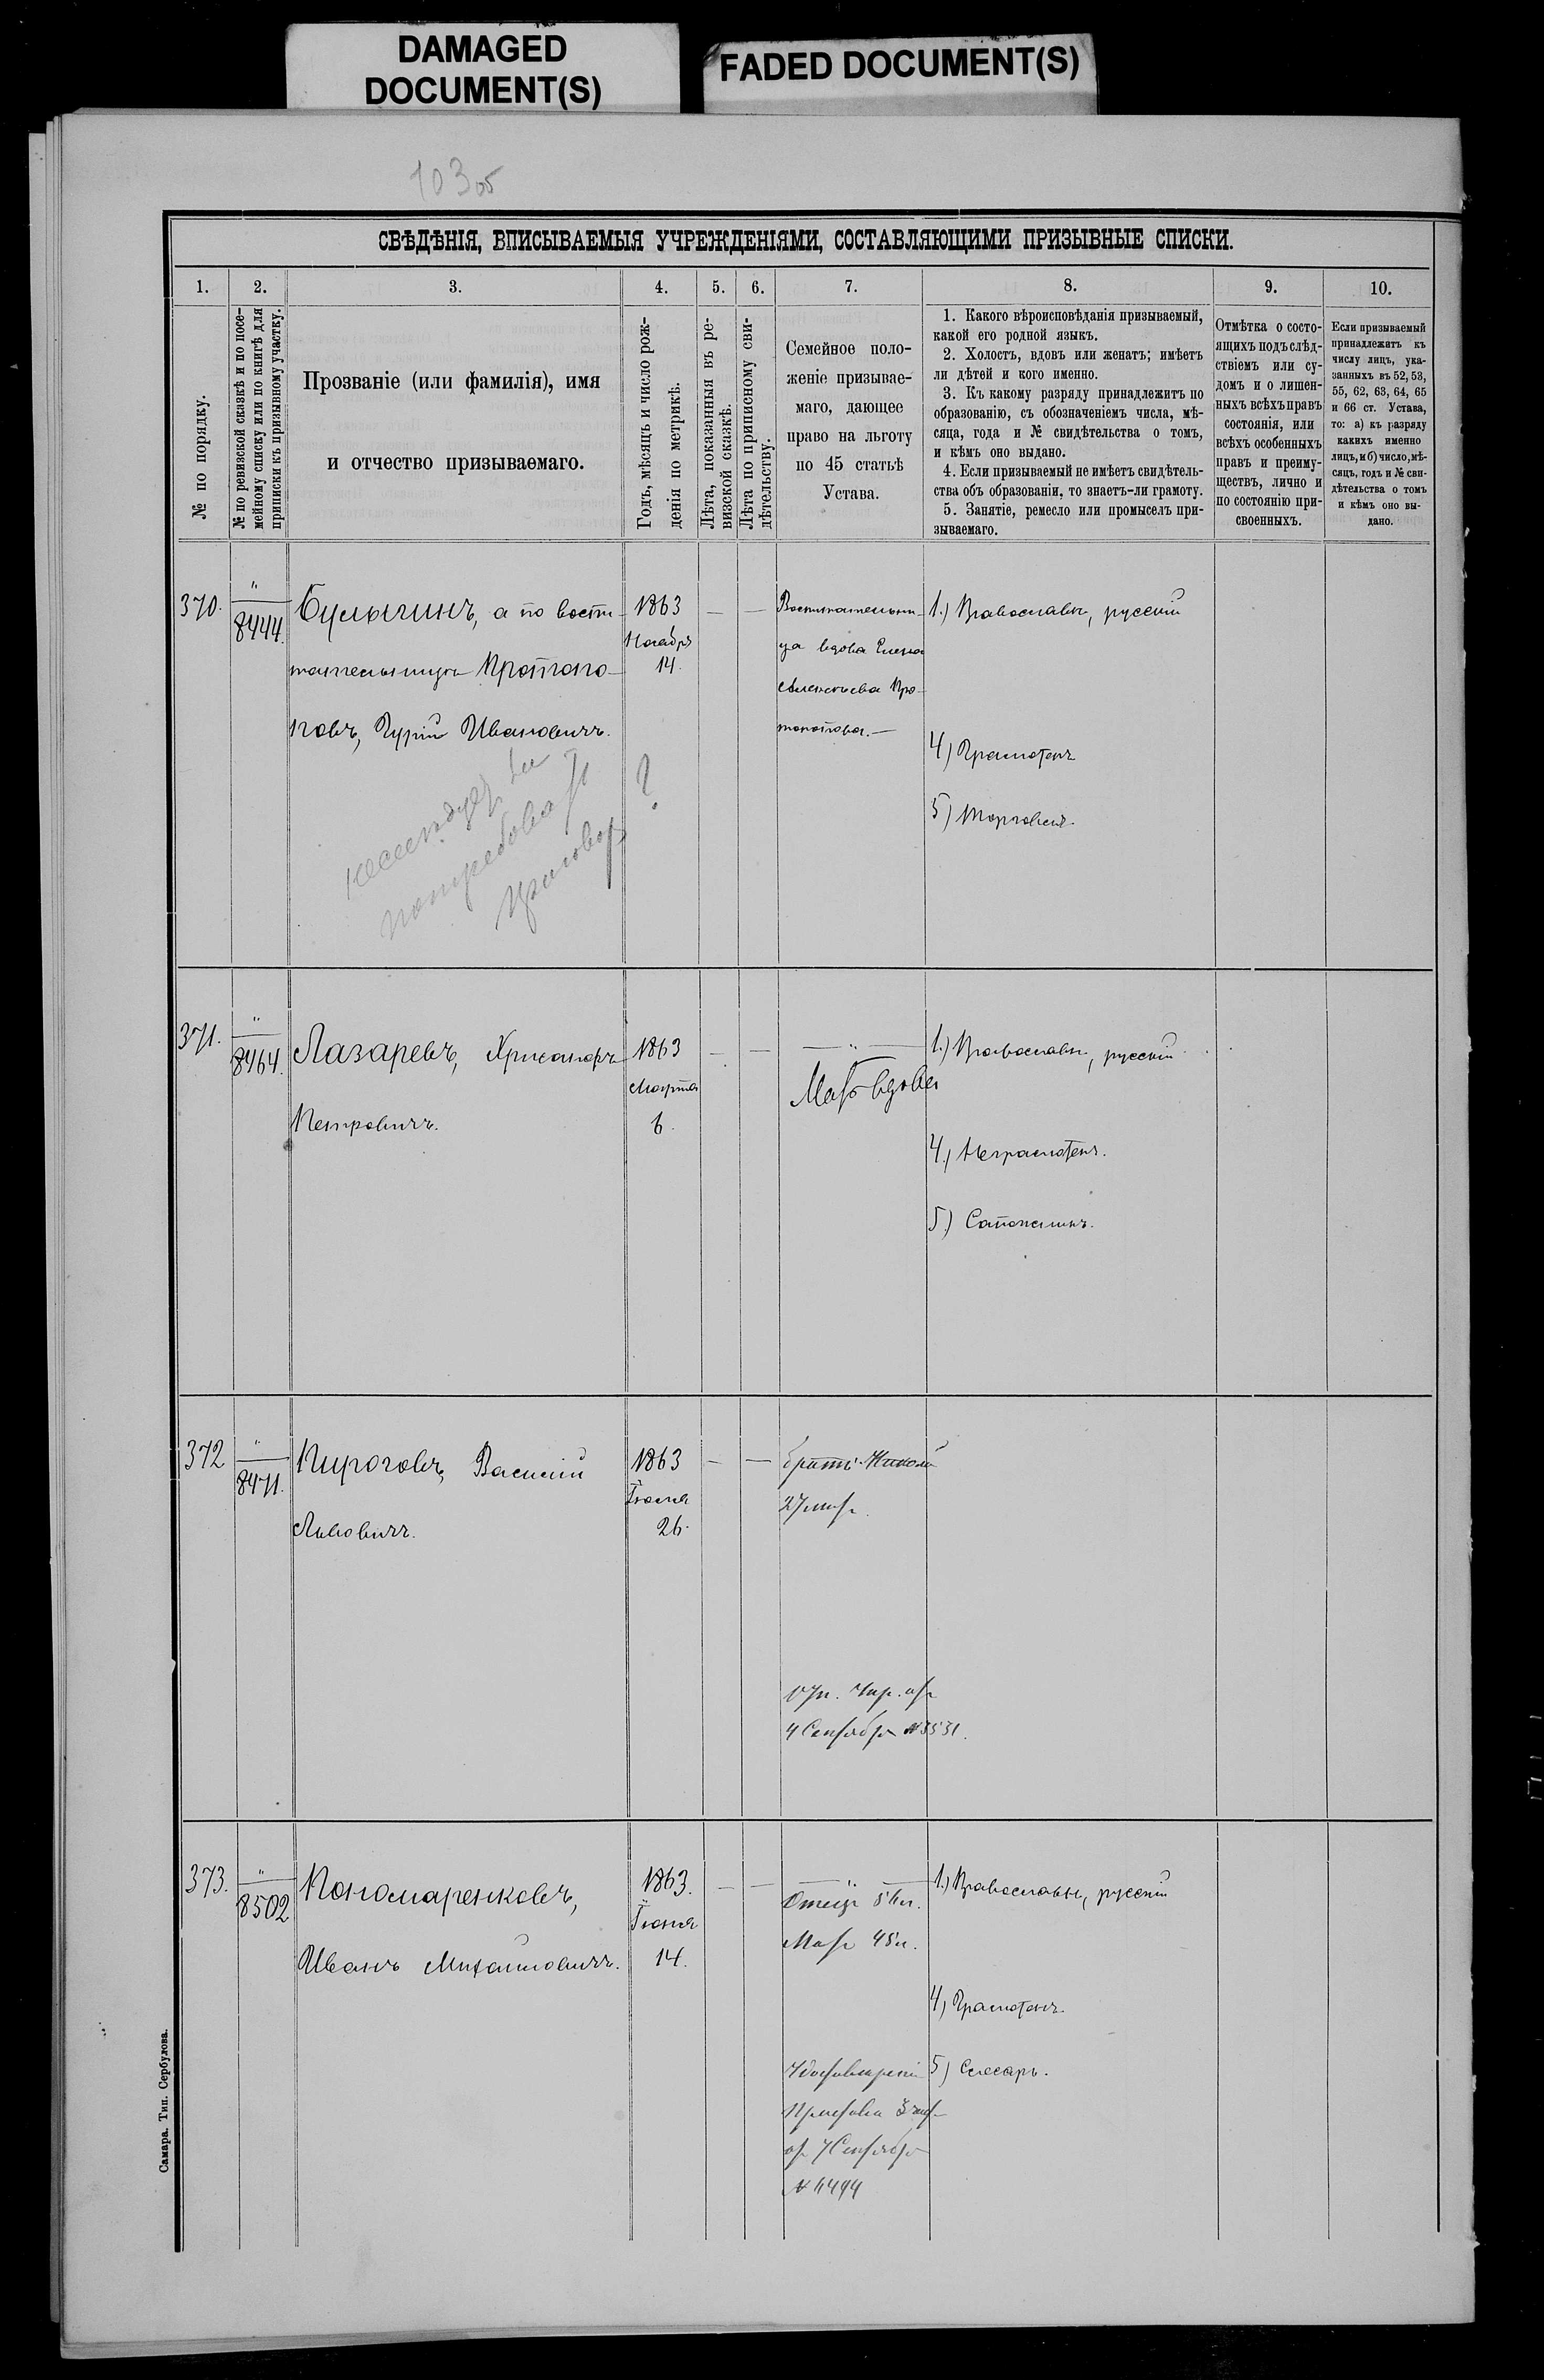 DAMAGED
DOCUMENT(S)
FADED DOCUMENT(S)
103 об
СВѢДѢНІЯ, ВПИСЫВАЕМЫЯ УЧРЕЖДЕНІЯМИ, СОСТАВЛЯЮЩИМИ ПРИЗЫВНЫЕ СПИСКИ.
1.
2.
3.
4.
5.
6.
7.
8.
9.
10.
№ по порядку.
№ по ревизской сказкѣ и по посе-
мейному списку или по книгѣ для
приписки къ призывному участку.
Прозваніе (или фамилія), имя
и отчество призываемаго.
Годъ, мѣсяцъ и число рож-
денія по метрикѣ.
Лѣта, показанныя въ ре-
визской сказкѣ.
Лѣта по приписному сви-
дѣтельству.
Семейное поло-
женіе призывае-
маго, дающее
право на льготу
по 45 статьѣ
Устава.
1. Какого вѣроисповѣданія призываемый,
какой его родной языкъ.
2. Холостъ, вдовъ или женатъ; имѣетъ
ли дѣтей и кого именно.
3. Къ какому разряду принадлежитъ по
образованію, съ обозначеніемъ числа, мѣ-
сяца, года и № свидѣтельства о томъ,
и кѣмъ оно выдано.
4. Если призываемый не имѣетъ свидѣтель-
ства объ образованіи, то знаетъ-ли грамоту.
5. Занятіе, ремесло или промыселъ при-
зываемаго.
Отмѣтка о состо-
ящихъ подъ слѣд-
ствіемъ или су-
домъ и о лишен-
ныхъ всѣхъ правъ
состоянія, или
всѣхъ особенныхъ
правъ и преиму-
ществъ, лично и
по состоянію при-
своенныхъ.
Если призываемый
принадлежитъ къ
числу лицъ, ука-
занныхъ въ 52, 53,
55, 62, 63, 64, 65
и 66 ст. Устава,
то: а) къ разряду
какихъ именно
лицъ, и б) число, мѣ-
сяцъ, годъ и № сви-
дѣтельства о томъ
и кѣмъ оно вы-
дано.
370.
"
8444.
Булычинъ, а по воспи-
тательницѣ Протопо-
повъ, Гурій Ивановичъ.
1863
Ноября
14.
—
—
Воспитательни-
ца вдова Елена
Алексѣева Про-
топопова.—
1.) Православн., русскій
4) Грамотенъ
5) Торговля.
потребоват
приговор ?
371.
"
8464.
Лазаревъ, Хрисанфъ
Петровичъ.
1863
Марта
6.
—
—
— " —
Мать вдова
1.) Православн., русскій
4.) Неграмотенъ.
5.) Сапожникъ.
372
"
8471.
Пироговъ, Василій
Львовичъ.
1863
Іюня
26.
—
—
братъ Николай
27 лѣт.
4 Сентября № 3531.
373.
"
8502
Пономаренковъ,
Иванъ Михайловичъ.
1863.
Іюня
14.
—
—
— " —
Отецъ 51 л.
Мать 45 л.
Пристава 3 част
от 7 Сентября
№ 4494
1.) Православн., русскій
4) Грамотенъ.
5) Слесарь.
Самара. Тип. Сербулова.